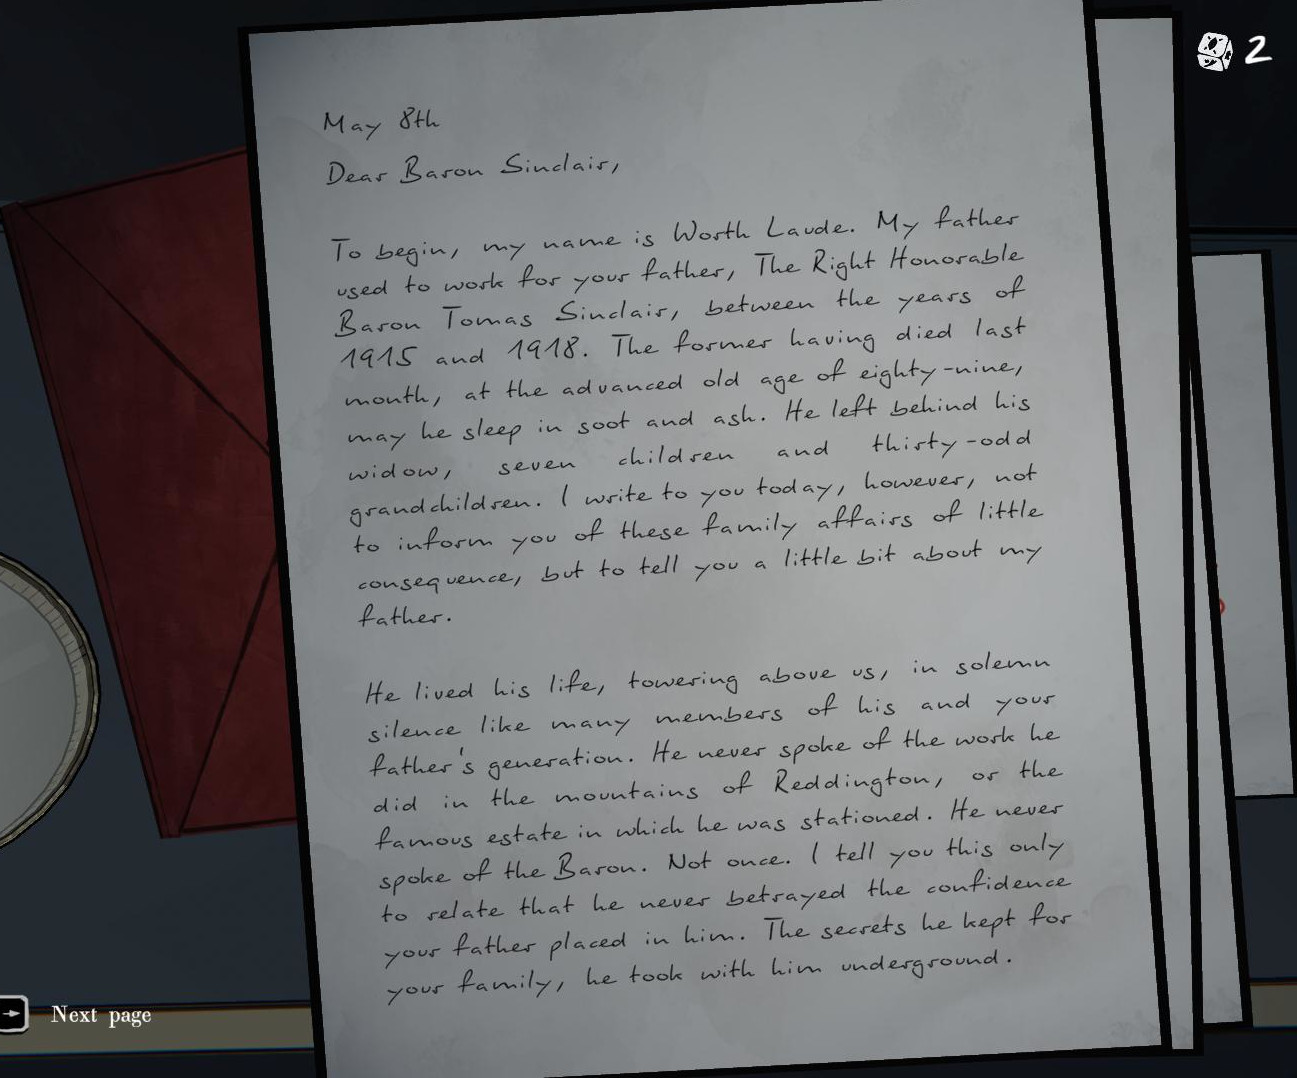 2
May 8th
Dear Baron Sinclair,
To begin, my name is Worth Laude. My father
used to work for your father, The Right Honorable
Baron Tomas Sinclair, between the years of
1915 and 1918. The former having died last
month, at the advanced old age of eighty-nine,
may he sleep in soot and ash. He left behind his
widow, seven children and thirty-odd
grandchildren. I write to you today, however, not
to inform you of these family affairs of little
consequence, but to tell you a little bit about my
father.
He lived his life, towering above us, in solemn
silence like many members of his and your
father's generation. He never spoke of the work he
did in the mountains of Reddington, or the
famous estate in which he was stationed. He never
spoke of the Baron. Not once. I tell you this only
to relate that he never betrayed the confidence
your father placed in him. The secrets he kept for
your family, he took with him underground.
Next page